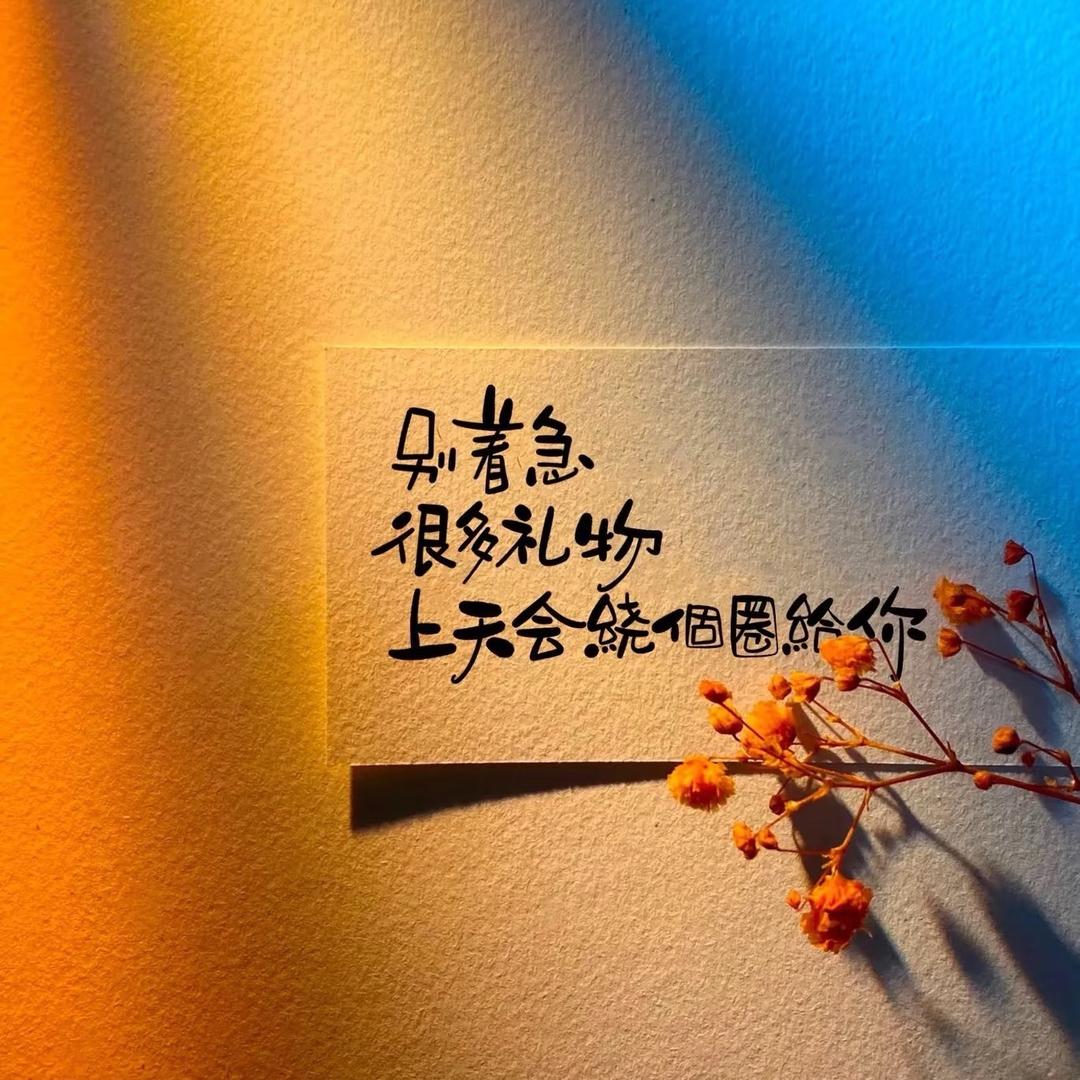 别着急
很多礼物
上天会繞個圈給你